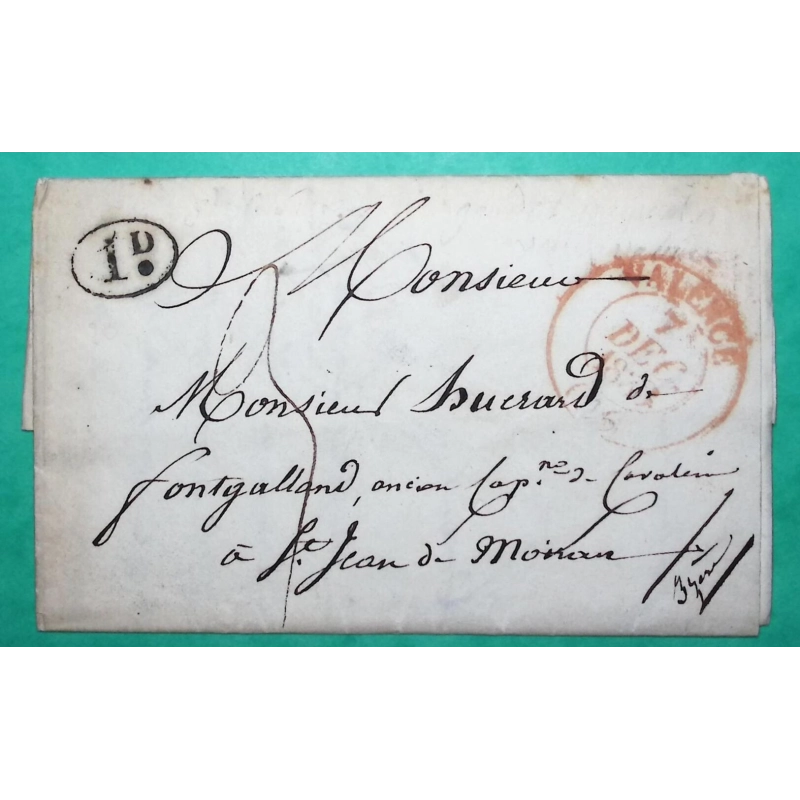 1D.
Monsieur
VALENCE
7
DEC
Monsieur huerard de
fontgalland, ancien Cap.ne de Cavalerie
à St. Jean de Moiran
Isère